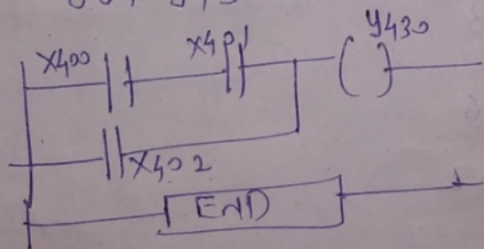 X400 X401 Y430
X402
END